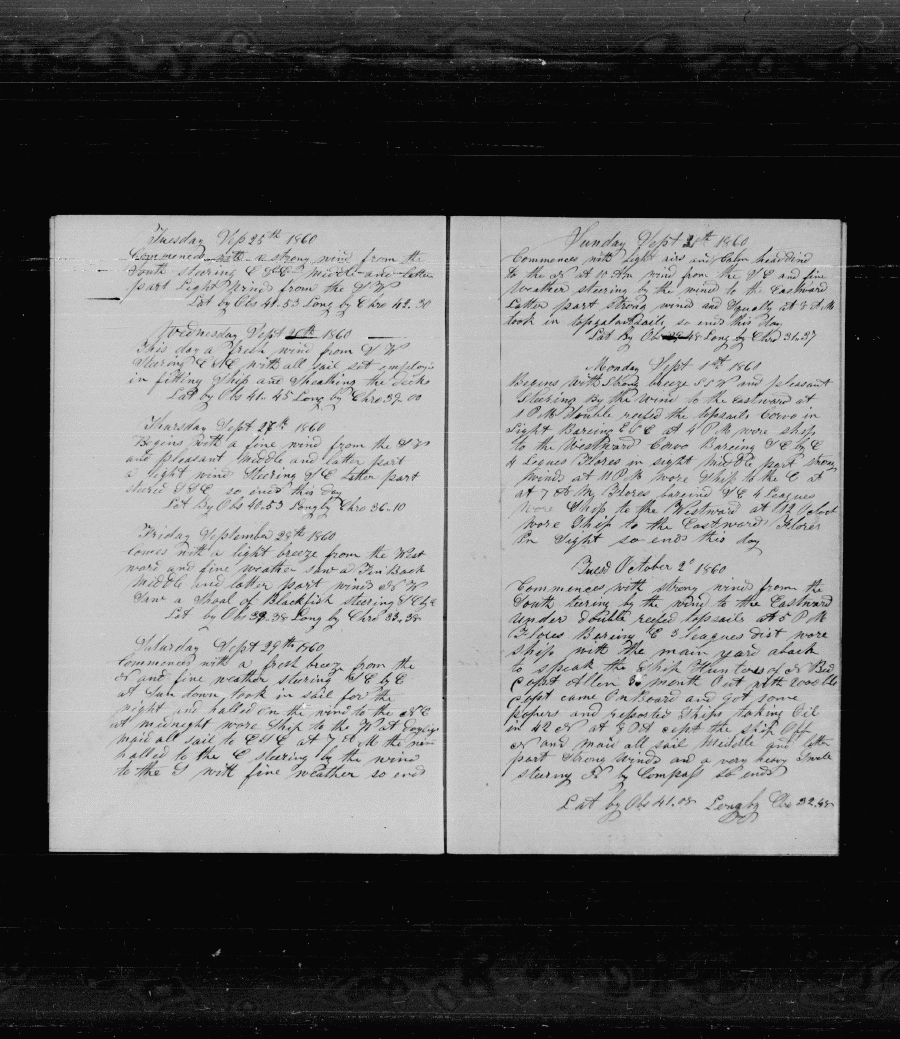 Tuesday Sep 25th 1860
Commenced with a strong wind from the
South steering E middle and latter
part Light Wind from the S W
Lat by Obs 41.53 Long by Chro 42.30
Wednesday Sept 26th 1860
This day a fresh wind from S W
Steering with all sail set employed
in fitting Ship and the Decks
Lat by Obs 41.45 Long by Chro 39.00
Thursday Sept 27th 1860
Begins with a fine wind from the S W
and pleasant Middle and latter part
a light wind Steering S E Latter part
stered so ends this day
Lat By Obs 40.53 Long by Chro 36.10
Friday September 28th 1860
Comes with a light breeze from the West
ward and fine weather saw a Fin Back
Middle and latter part wind N W
Saw a Shoal of Blackfish steering
Lat by Obs 39.38 Long by Chro 33.38
Saturday Sept 29th 1860
Commenced with a fresh breeze from the
N and fine weather steering SE by E
at Sun down took in sail for the
night and halled on the wind to the N E
at midnight wore Ship to the W at Daylight
maid all sail to at M the
halled to the E steering by the wind
to the S with fine Weather so ends
Sunday Sept 30th 1860
Commences with light airs and Calm head wind
to the N at 10 Am wind from the S E and fine
Weather steering by the wind to the Eastward
Latter part strong wind and Squally at 8 A M
took in topgalantsails so ends this day
Lat By Obs Long by Chro 31.37
Monday Sept 1st 1860
Begins with Strong breeze S S W and pleasant
Steering By the Wind to the Eastward at
1 P M double reefed the topsails Corvo in
Sight Bareing at 4 P M wore ship
to the Westward Corvo Bareing S E by E
4 legues Flores in sight Middle part strong
winds at 11 P M wore Ship to the E at
at 7 A M Flores bareing S E 4 Leagues
wore Ship to the Westward at 12 Oclock
wore Ship to the Eastward Flores
in Sight so ends this day
Tues October 2d 1860
Commences with strong wind from the
South teering by the wind to the Eastward
under double reefed topsails at 5 P M
Flores Baring E 3 leagues dist wore
ship with the main yard aback
to speak the Ship Hunter of N Bed
Capt Allen month Out with 2000 bbls
Capt came On Board and got some
papers and reported Ships taking Oil
in 42 N at Capt the ship Off
N and maid all sail Middle and latter
part Strong Winds and a very heavy Swell
steering N by Compass so ends
Lat by Obs 41.08 Long by Chro 32.48